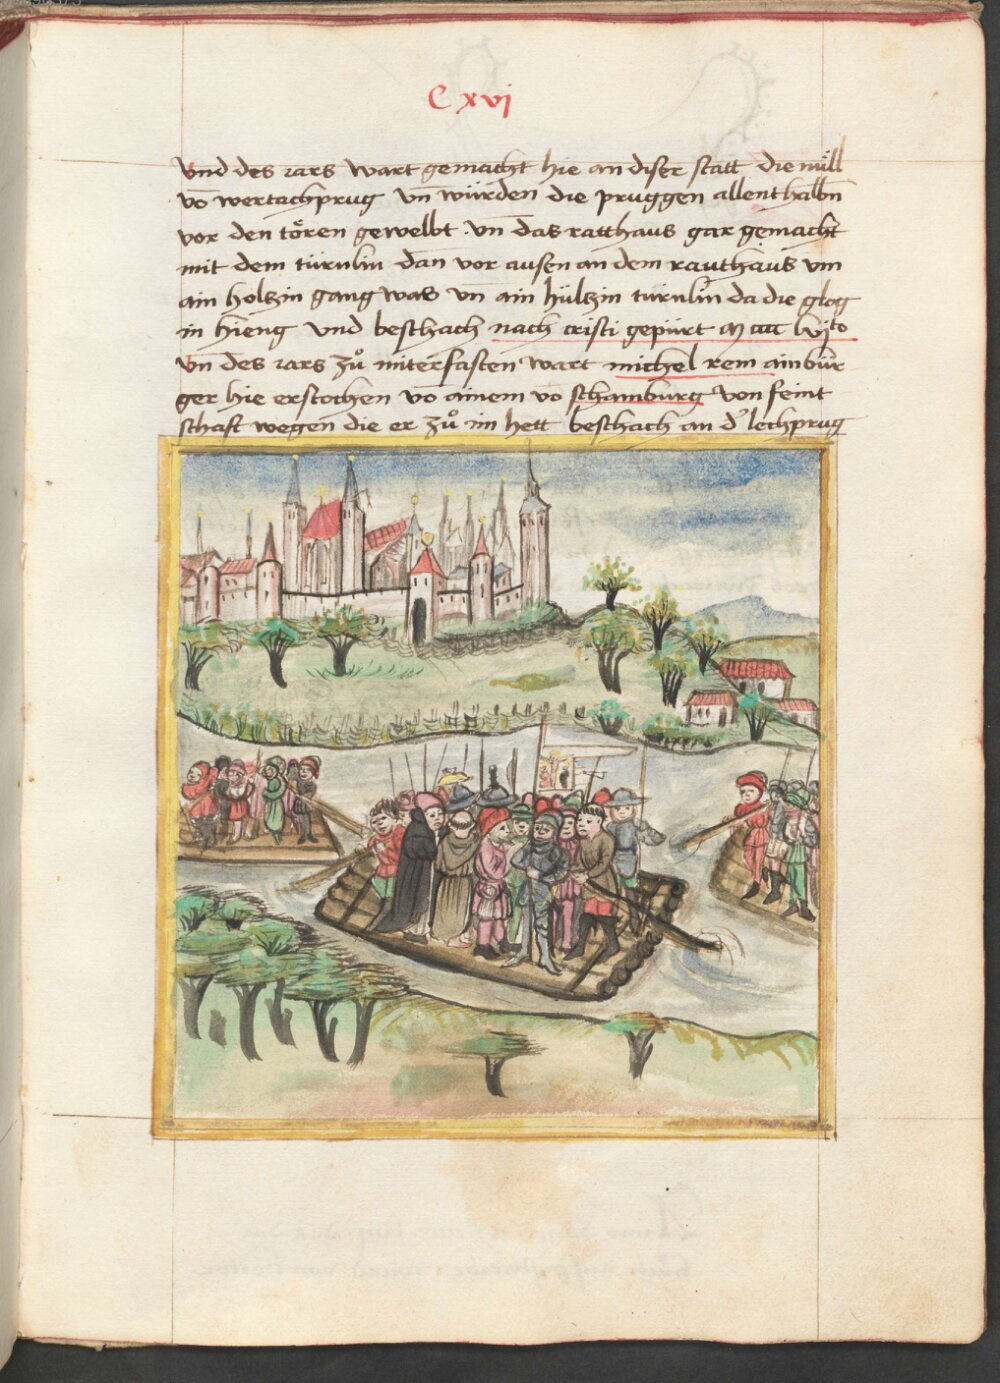 C xvj
Vnd des iars wart gemacht hie an diser statt die mu̎ll
vō wertachprug vn̄ würden die pruggen allenthalbn̄
vor den tören gewelbt · vn̄ das ratthaus gar gemacht
mit dem türnlin dan vor ausen an dem rauthaus vm
ain holtzin gang was vn̄ ain hültzin türnlin da die glog
in hieng vnd beschach nach cristi gepürt lvj to
vn̄ des iars zů miterfasten wart michel rem ain bür
ger hie erstochen vō ainem vō schamburg von feint
schaft wegen die er zů im hett beschach an d' lechprug